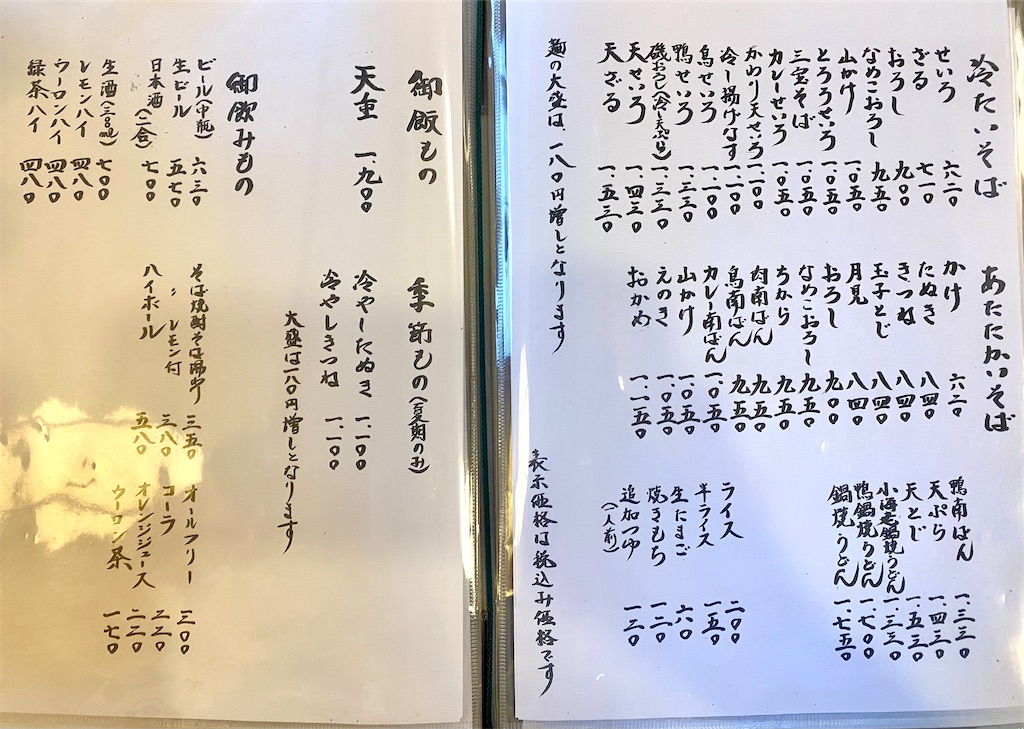 冷たいそば
せいろ 六二〇
ざる 七一〇
おろし 九〇〇
なめこおろし 九五〇
山かけ 一、〇五〇
とろろせいろ 一、〇五〇
三宝そば 一、〇五〇
カレーせいろ 一、〇五〇
かわり天せいろ 一、一〇〇
冷し揚げなす 一、一〇〇
鳥せいろ 一、一〇〇
鴨せいろ 一、三三〇
磯おろし(冷し天ぷら) 一、三三〇
天せいろ 一、四三〇
天ざる 一、五三〇
麺の大盛は、一八〇円増しとなります
あたたかいそば
かけ 六二〇
たぬき 八四〇
きつね 八四〇
玉子とじ 八四〇
月見 八四〇
おろし 九〇〇
なめこおろし 九五〇
ちから 九五〇
肉南ばん 九五〇
鳥南ばん 九五〇
カレー南ばん 一、〇五〇
山かけ 一、〇五〇
えのき 一、〇五〇
おかめ 一、一五〇
鴨南ばん 一、三三〇
天ぷら 一、四三〇
天とじ 一、五三〇
小海老鍋焼うどん 一、三三〇
鴨鍋焼うどん 一、七〇〇
鍋焼うどん 一、七五〇
ライス 二〇〇
半ライス 一五〇
生たまご 六〇
焼きもち 一二〇
追加つゆ(一人前) 一三〇
表示価格は税込み価格です
御飯もの
天重 一、九〇〇
季節もの(夏期のみ)
冷やしたぬき 一、一〇〇
冷やしきつね 一、一〇〇
大盛は一八〇円増しとなります
御飲みもの
ビール(中瓶) 六三〇
生ビール 五七〇
日本酒(二合) 七〇〇
生酒(三〇〇ml) 七〇〇
レモンハイ 四八〇
ウーロンハイ 四八〇
緑茶ハイ 四八〇
そば焼酎そば湯割 三五〇
〃 レモン付 三八〇
ハイボール 五八〇
オールフリー 三〇〇
コーラ 二二〇
オレンジジュース 二二〇
ウーロン茶 一七〇